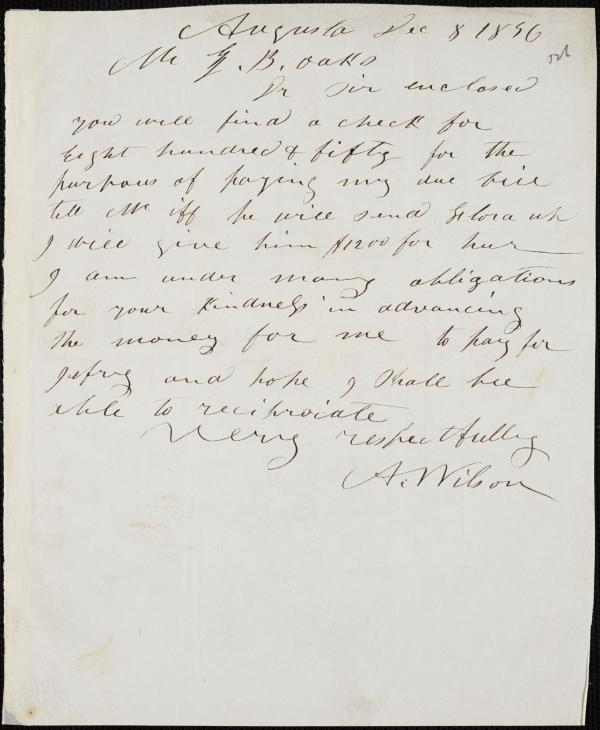 Augusta Dec 8 1856
Mr Z. B. oaks
Dr Sir enclosed
you will find a check for
Eight hundred & fifty for the
purpous of paying my due bill
tell Mr iff he will send Flora up
I will give him $1200 for hur
I am under many obligations
for your Kindness in advancing
the money for me to pay for
and hope I Shall bee
able to reciprociate
Verry respectfully
A. Wilson